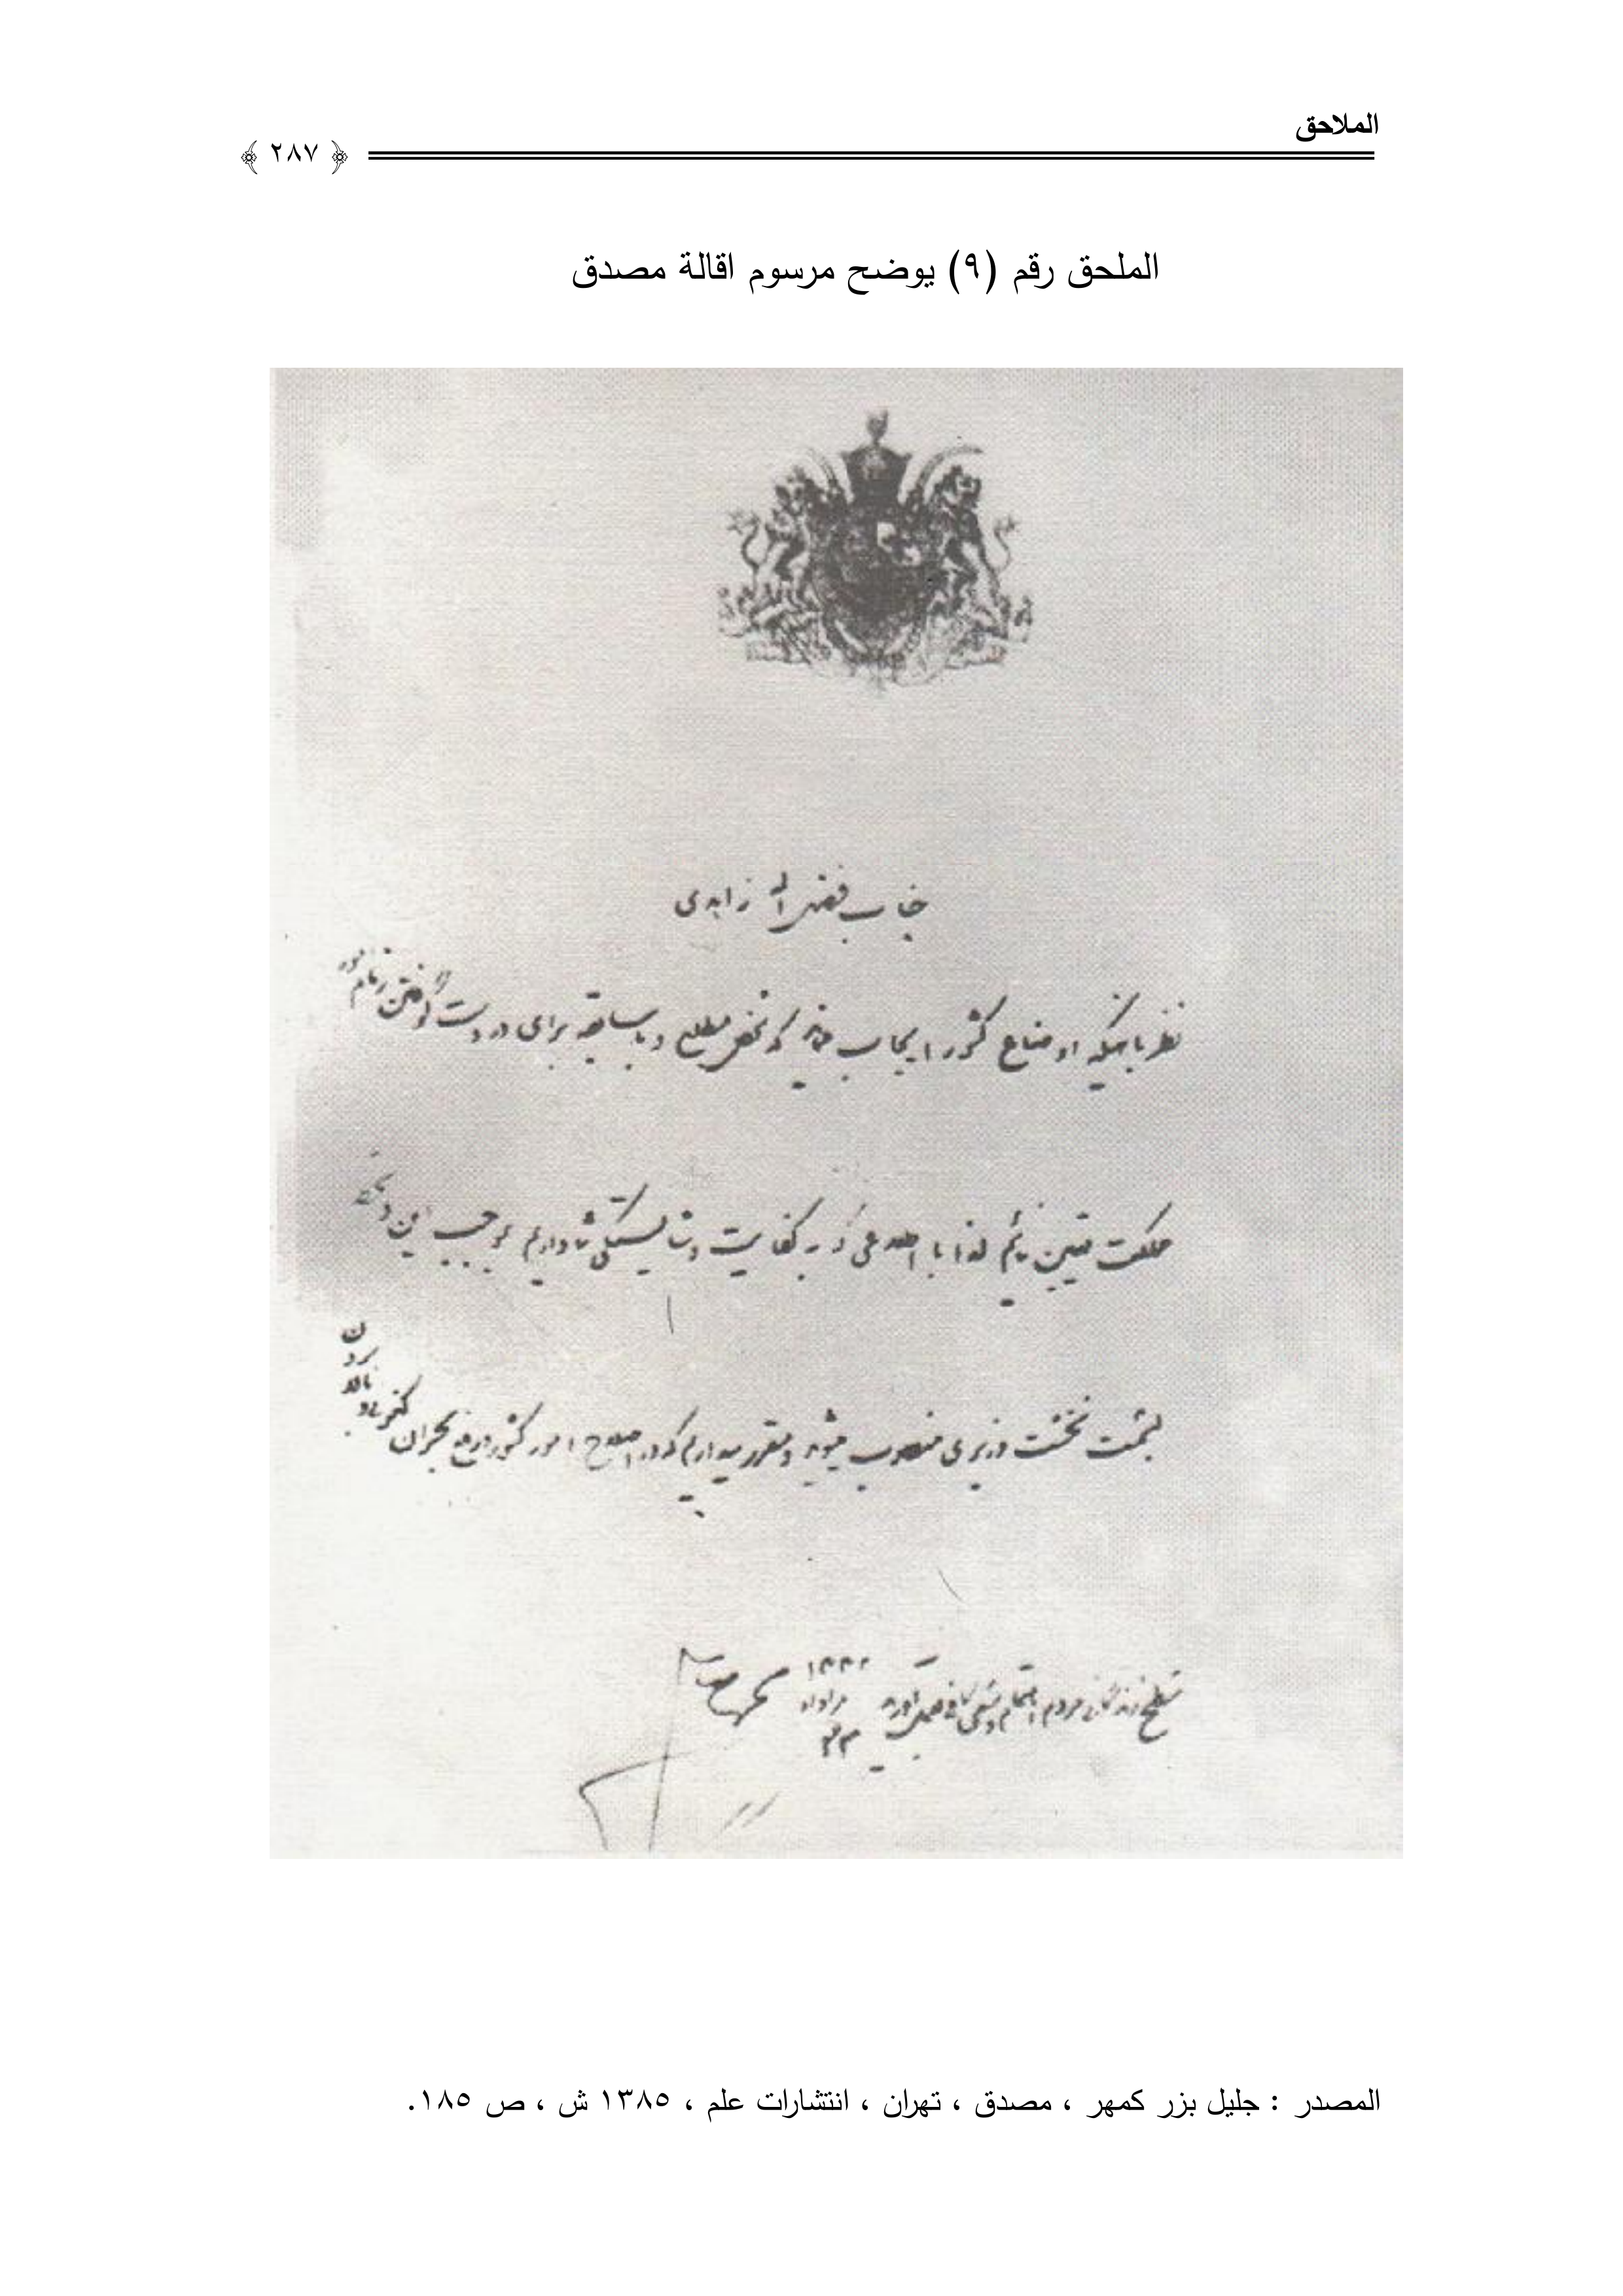 الملاحق
﴿ ٢٨٧ ﴾
الملحق رقم (٩) يوضح مرسوم اقالة مصدق
جناب فضل اله زاهدی
نظر باینکه اوضاع کشور ایجاب مینماید که شخص مطلع و با سابقه برای در دست گرفتن زمام امور
مملکت تعیین نمائیم لذا با اطلاعی که به کفایت و شایستگی شما داریم بموجب این دستخط
بسمت نخست وزیری منصوب میشوید و مقرر میداریم که در اصلاح امور کشور و رفع بحران کنونی و بالا بردن
سطح زندگانی مردم اهتمام و سعی کافی بعمل آورید
١٣٣٢
مرداد
٢٢
المصدر : جليل بزر كمهر ، مصدق ، تهران ، انتشارات علم ، ١٣٨٥ ش ، ص ١٨٥.